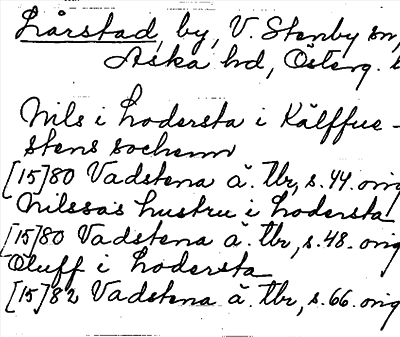 Lårstad, by, V. Stenby sn,
Aska hd, Österg.
Nils i Lodersta i Kälffue-
stens sochenn
[15]80 Vadstena ä. tbr, s. 44. orig
Nilssas hustru i Lodersta
[15]80 Vadstena ä. tbr, s. 48. orig
Oluff i Lodersta
[15]82 Vadstena ä. tbr, s. 66. orig